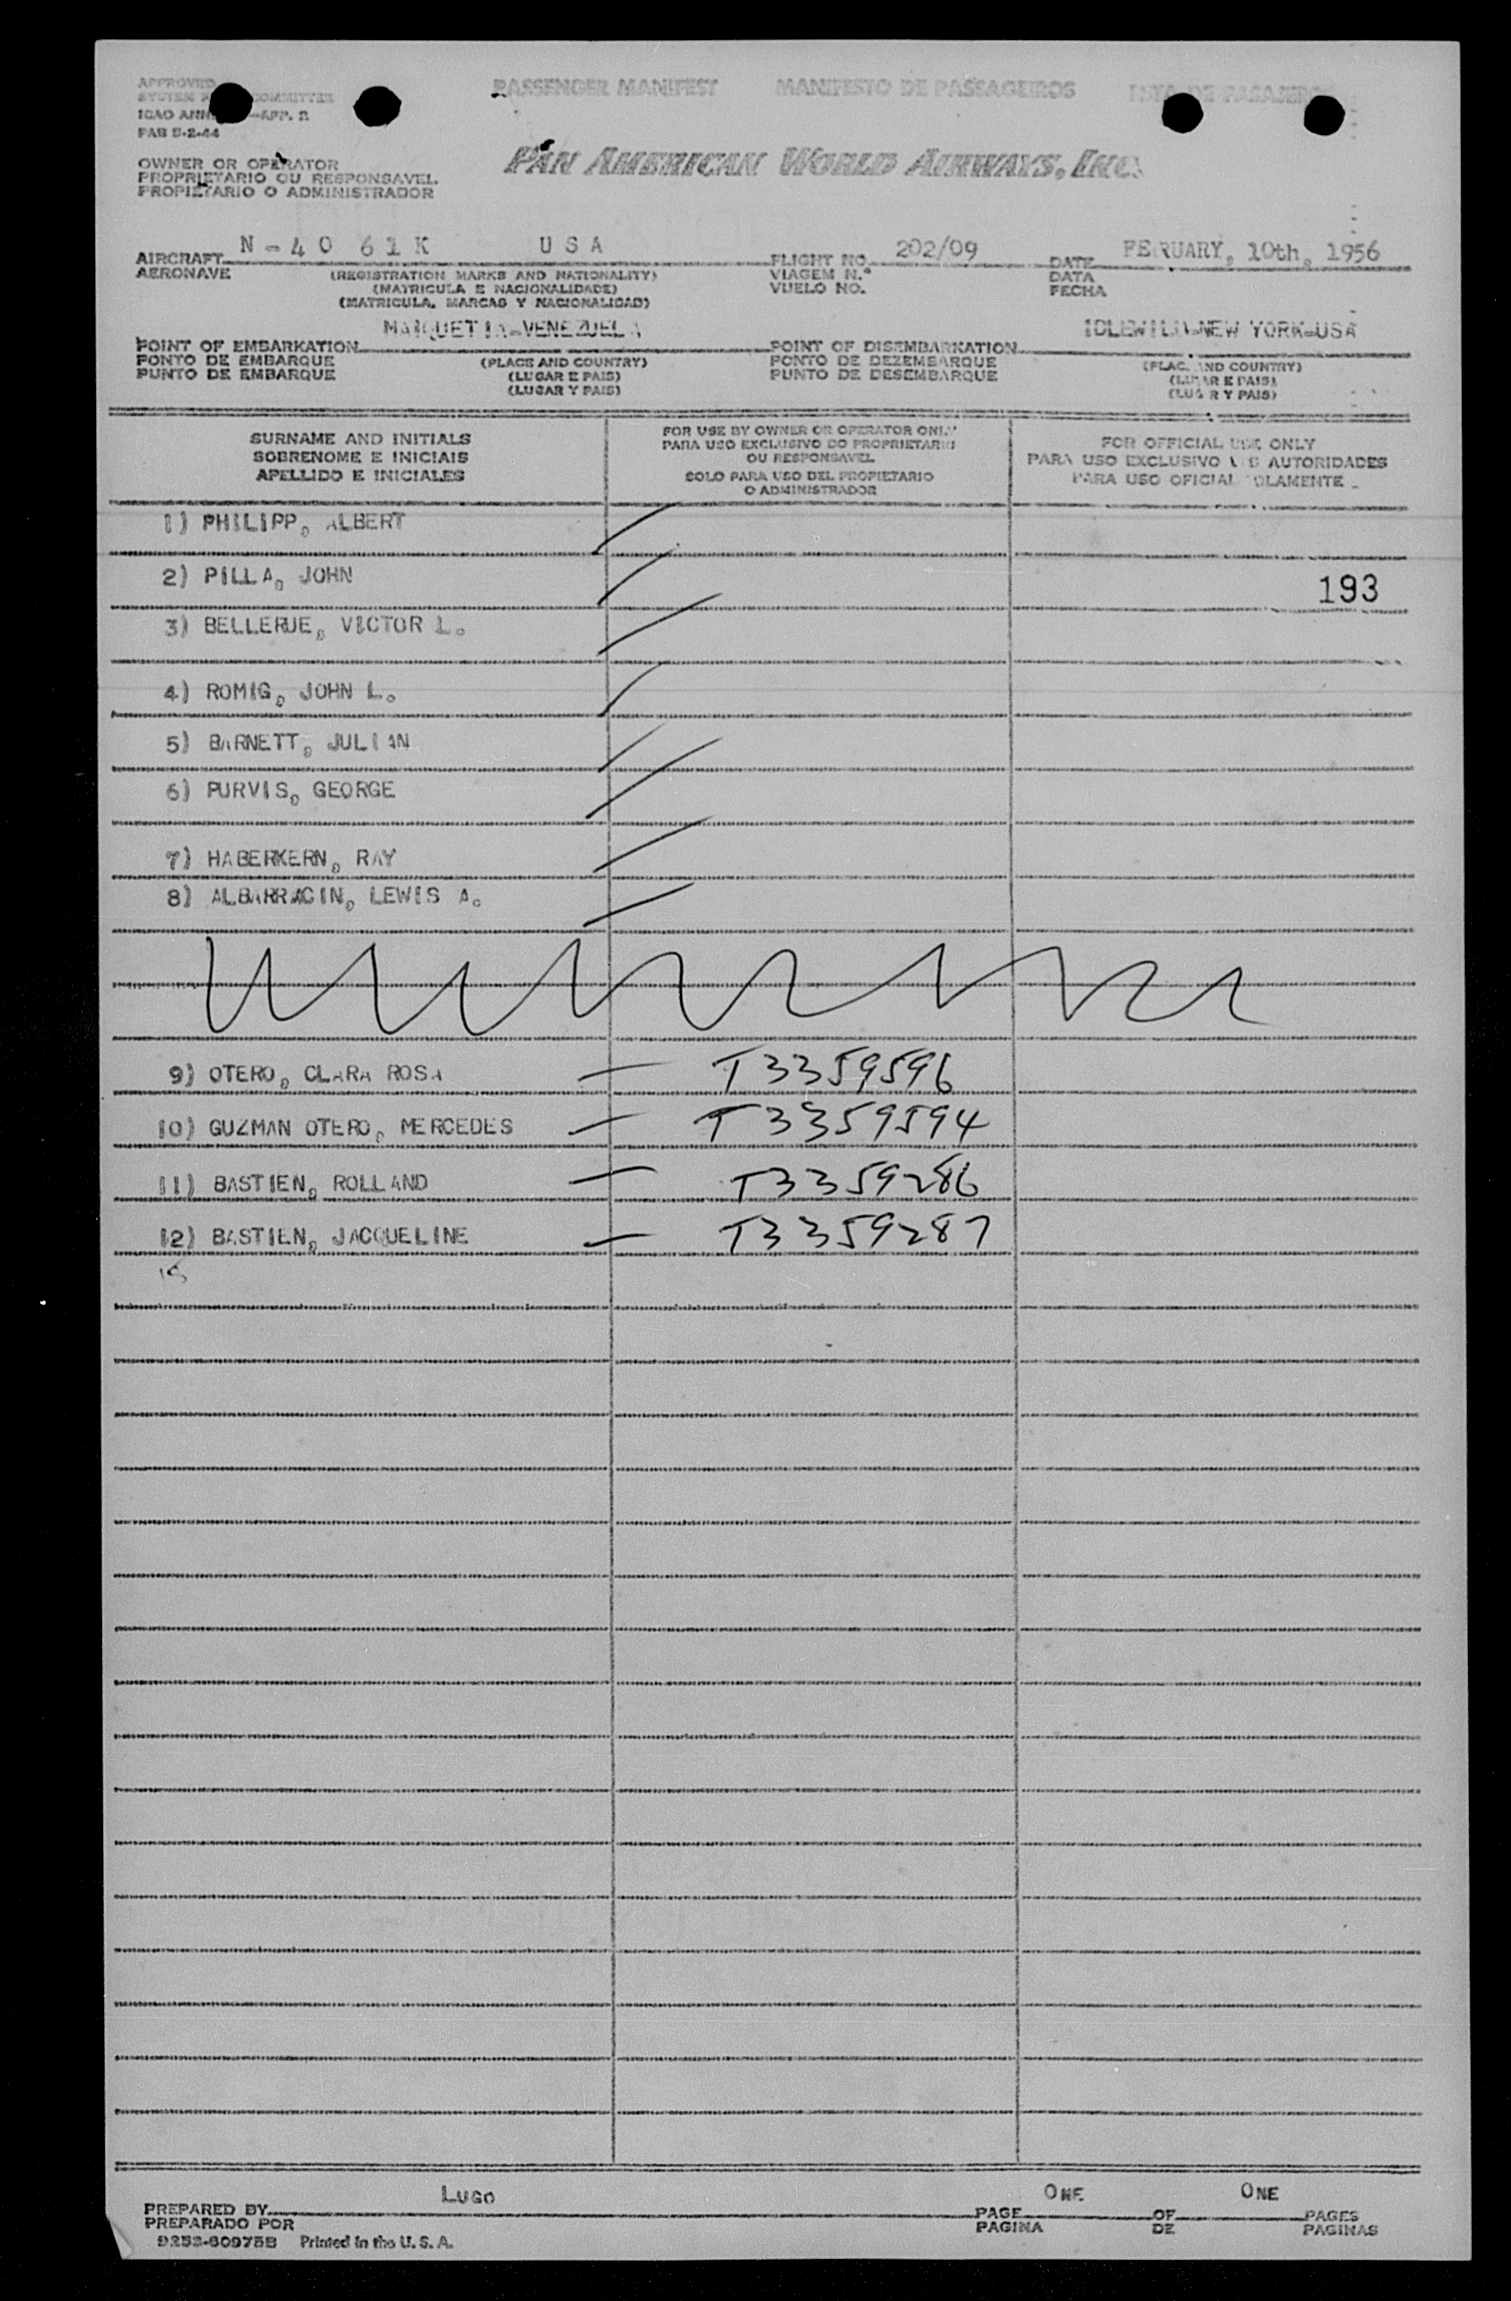 APPROVED
SYSTEM COMMITTEE
ICAO APP. 2
FAB 5-2-44
PASSENGER MANIFEST MANIFESTO DE PASSAGEIROS LISTA DE PASAJEROS
OWNER OR OPERATOR
PROPRIETARIO OU RESPONSAVEL
PROPIETARIO O ADMINISTRADOR
PAN AMERICAN WORLD AIRWAYS, INC.
AIRCRAFT N-40 61K USA FLIGHT NO. 202/09 DATE FEBRUARY, 10th, 1956
AERONAVE (REGISTRATION MARKS AND NATIONALITY) VIAGEM N.º DATA
(MATRICULA E NACIONALIDADE) VUELO NO. FECHA
(MATRICULA, MARCAS Y NACIONALIDAD)
POINT OF EMBARKATION MAIQUETIA-VENEZUELA POINT OF DISEMBARKATION IDLEWILD-NEW YORK-USA
PONTO DE EMBARQUE (PLACE AND COUNTRY) PONTO DE DEZEMBARQUE (PLACE AND COUNTRY)
PUNTO DE EMBARQUE (LUGAR E PAIS) PUNTO DE DESEMBARQUE (LUGAR E PAIS)
(LUGAR Y PAIS) (LUGAR Y PAIS)
SURNAME AND INITIALS
SOBRENOME E INICIAIS
APELLIDO E INICIALES
FOR USE BY OWNER OR OPERATOR ONLY
PARA USO EXCLUSIVO DO PROPRIETARIO
OU RESPONSAVEL
SOLO PARA USO DEL PROPIETARIO
O ADMINISTRADOR
FOR OFFICIAL USE ONLY
PARA USO EXCLUSIVO DAS AUTORIDADES
PARA USO OFICIAL SOLAMENTE
1) PHILIPP, ALBERT
2) PILLA, JOHN 193
3) BELLERUE, VICTOR L.
4) ROMIG, JOHN L.
5) BARNETT, JULIAN
6) PURVIS, GEORGE
7) HABERKERN, RAY
8) ALBARRACIN, LEWIS A.
9) OTERO, CLARA ROSA — T3359596
10) GUZMAN OTERO, MERCEDES — T3359594
11) BASTIEN, ROLLAND — T3359286
12) BASTIEN, JACQUELINE — T3359287
PREPARED BY LUGO PAGE ONE OF ONE PAGES
PREPARADO POR PAGINA DE PAGINAS
9253-60975B Printed in the U. S. A.